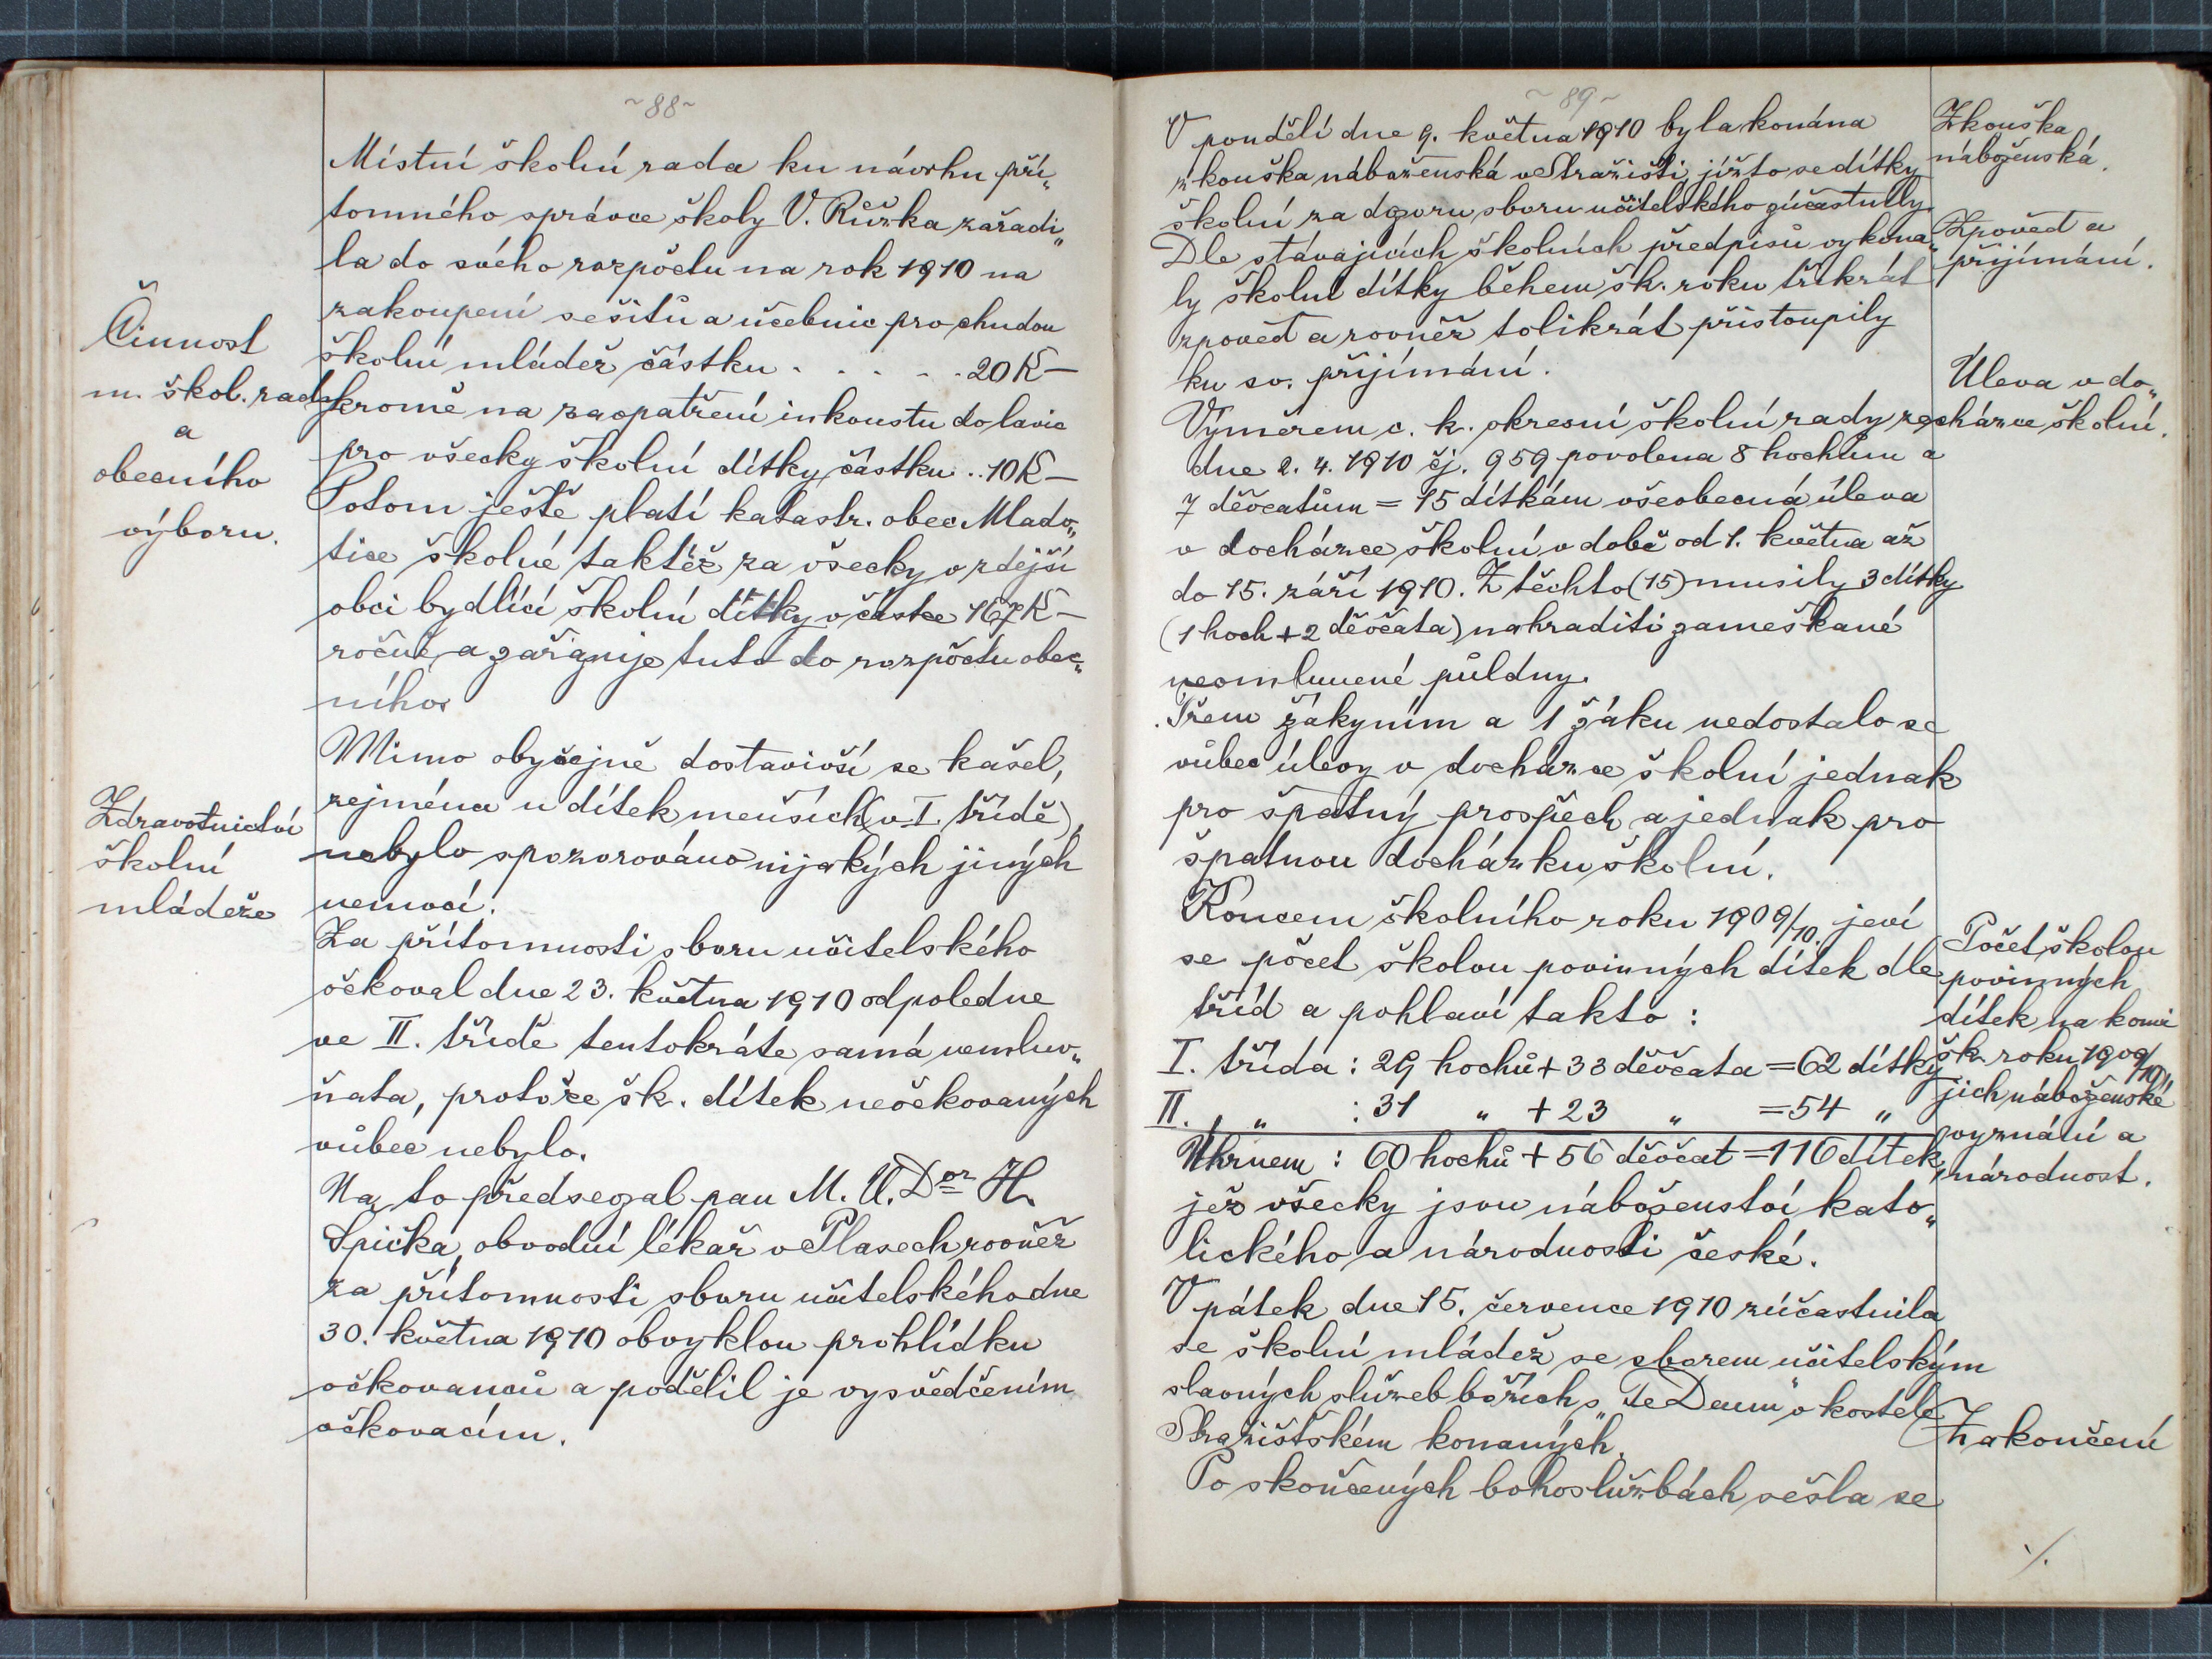 ~88~
Místní školní rada ku návrhu pří„
tomného správce školy V. Růžka zařadi„
la do svého rozpočtu na rok 1910 na
zakoupení sešitů a učebnic pro chudou
školní mládež částku . . . . . 20 K –
kromě na zaopatření inkoustu do lavic
pro všecky školní dítky částku .. 10 K –
Potom ještě platí katastr. obec Mlado„
tice školné taktéž za všecky v zdejší
obci bydlící školní dítky v částce 167 K –
ročně, a zařaznije tuto do rozpočtu obec„
ního.
Činnost
m. škol. rady
a
obecního
výboru.
Mimo obyčejně dostavivší se kašel,
zejména u dítek menších (v I. třídě),
nebylo spozorováno nijakých jiných
nemocí.
Zdravotnictví
školní
mládeže
Za přítomnosti sboru učitelského
očkoval dne 23. května 1910 odpoledne
ve II. třídě tentokráte samá nemluv„
ňata, protože šk. dítek neočkovaných
vůbec nebylo.
Na to předsevzal pan M. U. Dor H.
Špička, obvodní lékař v Plasech rovněž
za přítomnosti sboru učitelského dne
30. května 1910 obvyklou prohlídku
očkovanců a podělil je vysvědčením
očkovacím.
~89~
V pondělí dne 9. května 1910 byla konána
zkouška náboženská ve Stražišti, jížto se dítky
školní za dozoru sboru učitelského zúčastnily.
Zkouška
náboženská.
Dle stávajících školních předpisů vykona„
ly školní dítky během šk. roku třikrát
zpověď a rovněž tolikrát přistoupily
ku sv. přijímání.
Zpověď a
přijímání.
Výměrem c. k. okresní školní rady ze
dne 2. 4. 1910 čj. 959 povolena 8 hochům a
7 děvčatům = 15 dítkám všeobecná úleva
v docházce školní v době od 1. května až
do 15. září 1910. Z těchto (15) musily 3 dítky
(1 hoch + 2 děvčata) nahraditi zameškané
neomluvené půldny.
Úleva v do„
cházce školní.
Třem žákyním a 1 žáku nedostalo se
vůbec úlevy v docházce školní jednak
pro špatný prospěch a jednak pro
špatnou docházku školní.
Koncem školního roku 1909/10. jeví
se počet školou povinných dítek dle
tříd a pohlaví takto :
I. třída : 29 hochů + 33 děvčata = 62 dítky
II. „ : 31 „ + 23 „ = 54 „
Úhrnem : 60 hochů + 56 děvčat = 116 dítek,
jež všecky jsou náboženství kato„
lického a národnosti české.
Počet školou
povinných
dítek na konci
šk. roku 1909/10,
jich náboženské
vyznání a
národnost.
V pátek dne 15. července 1910 zúčastnila
se školní mládež se sborem učitelským
slavných služeb božích s „Te Deum“ v kostele
Stražišťském konaných.
Po skončených bohoslužbách sešla se
Zakončení
./.